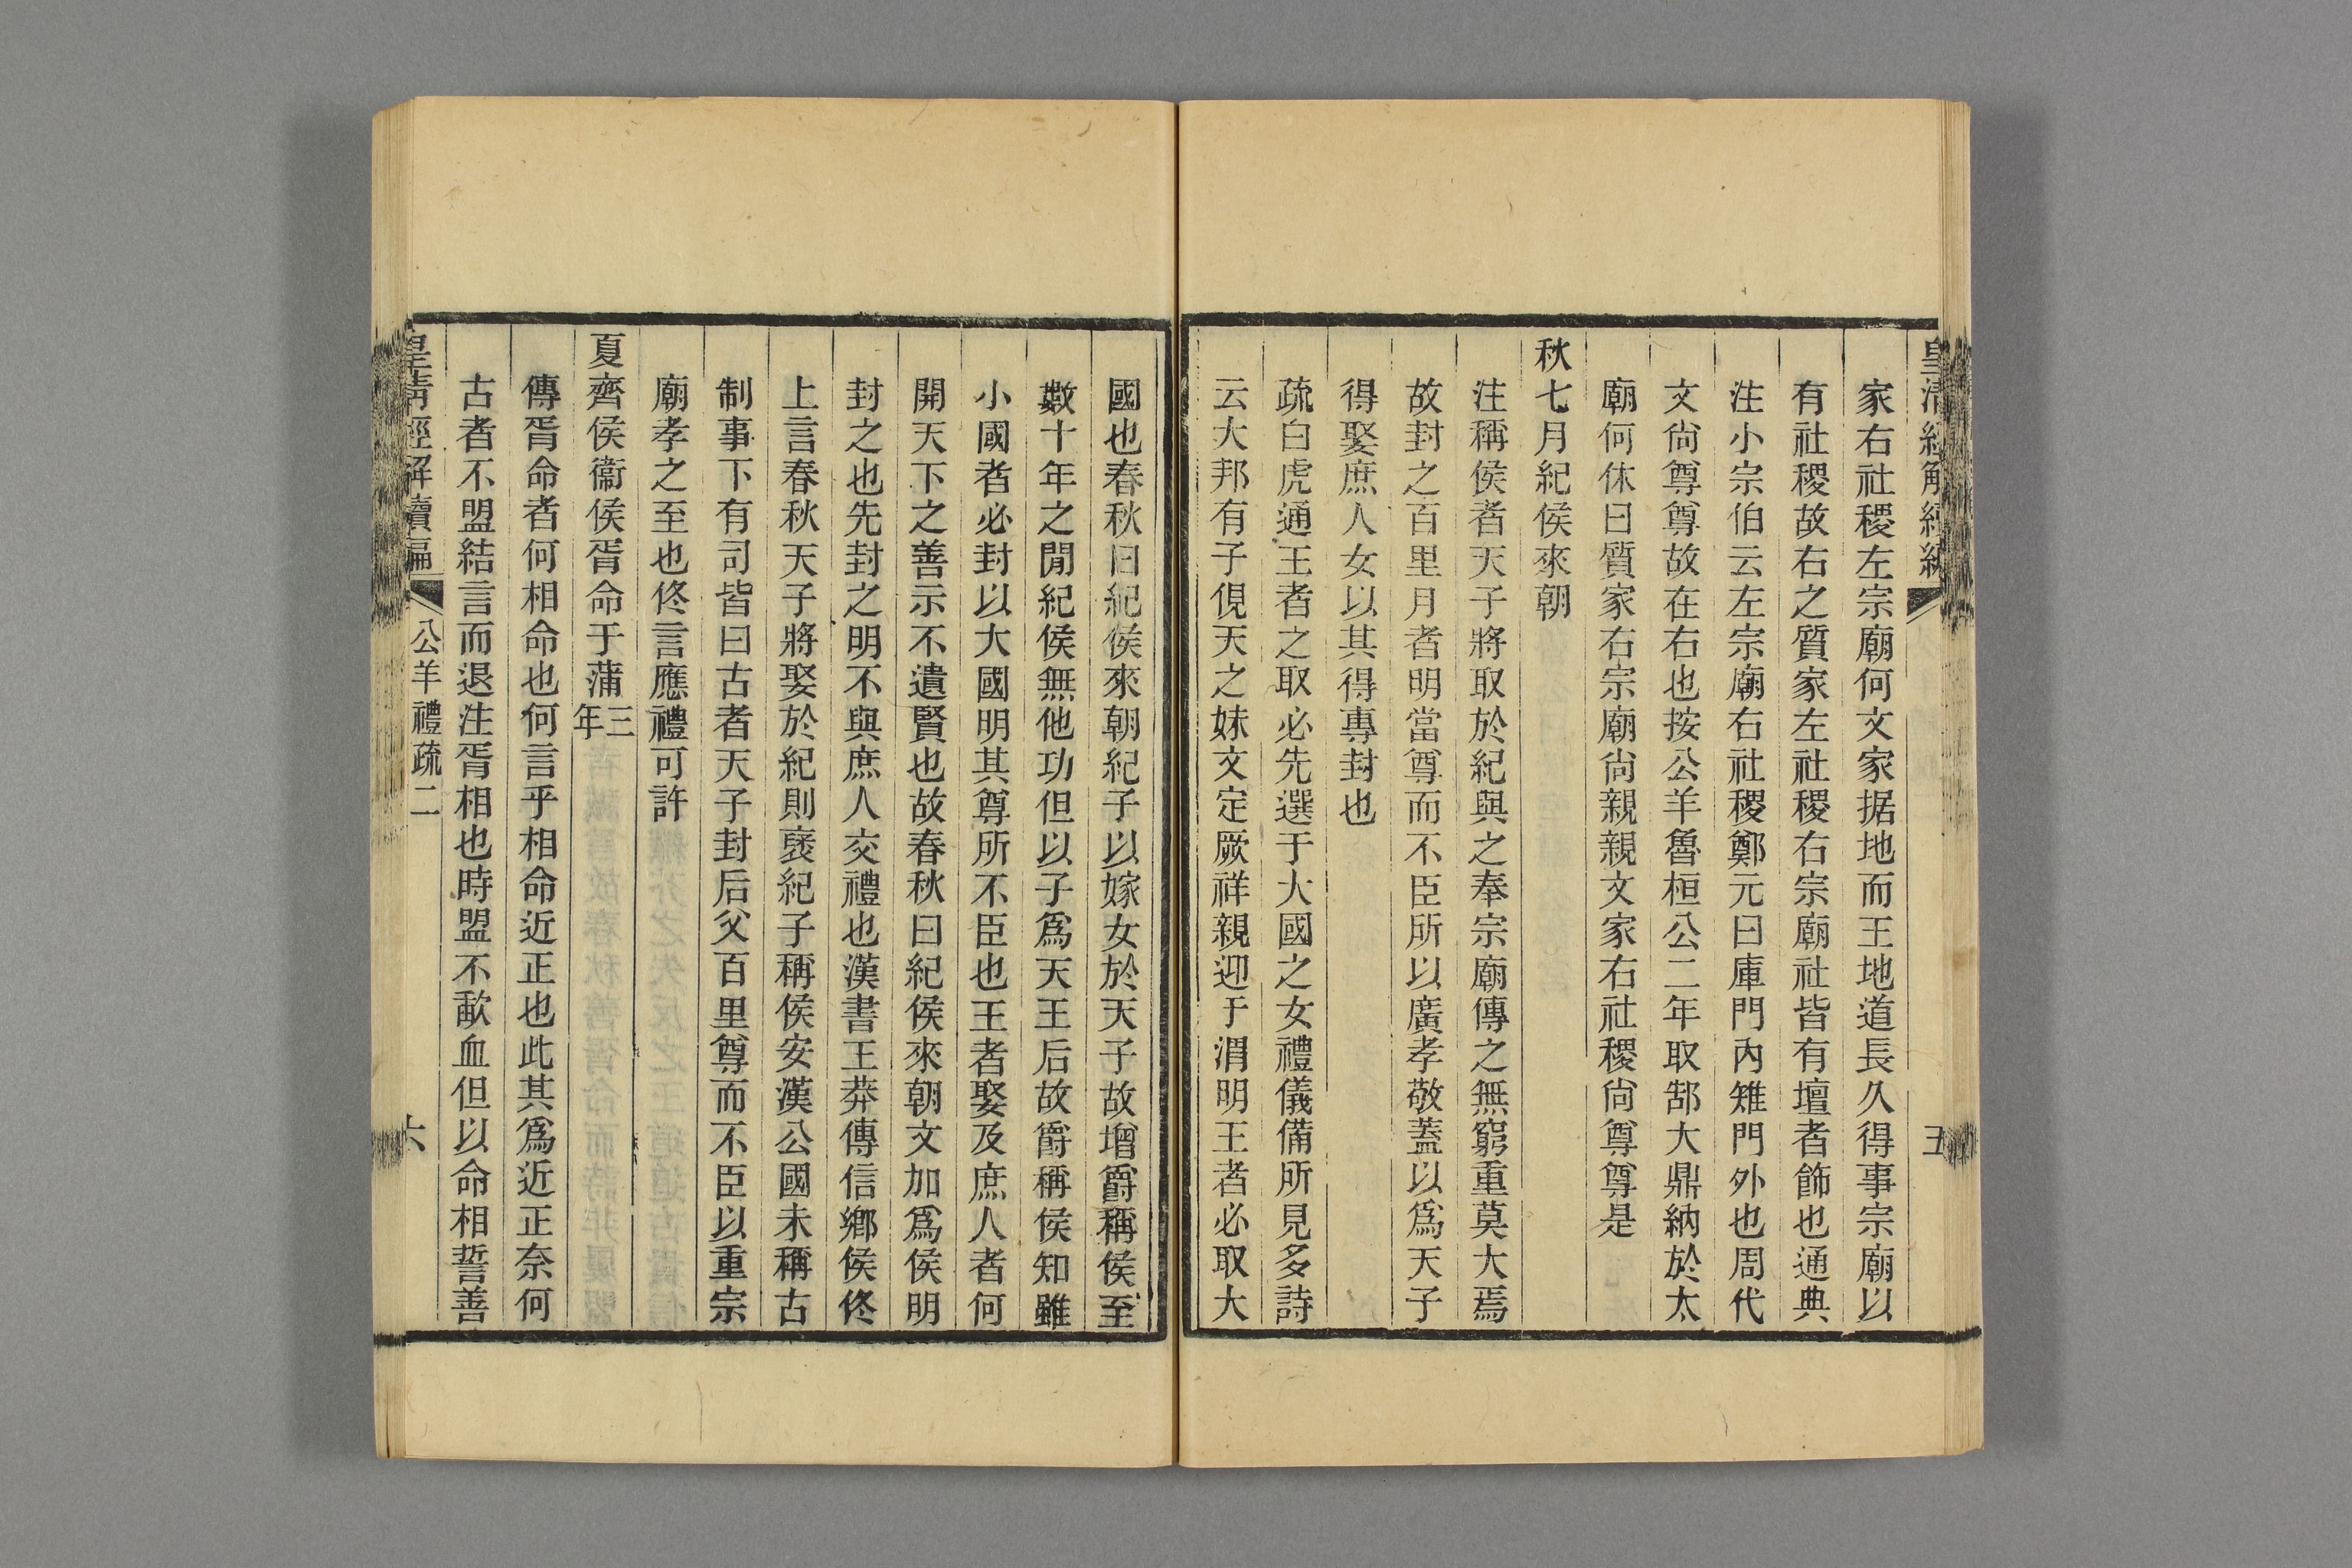 皇清經解續編
五
家右社稷左宗廟何文家据地而王地道長久得事宗廟以
有社稷故右之質家左社稷右宗廟社皆有壇者飾也通典
注小宗伯云左宗廟右社稷鄭元曰庫門內雉門外也周代
文尙尊尊故在右也按公羊魯桓公二年取郜大鼎納於太
廟何休曰質家右宗廟尙親親文家右社稷尙尊尊是
秋七月紀侯來朝
注稱侯者天子將取於紀與之奉宗廟傳之無窮重莫大焉
故封之百里月者明當尊而不臣所以廣孝敬蓋以爲天子
得娶庶人女以其得專封也
疏白虎通王者之取必先選于大國之女禮儀備所見多詩
云大邦有子俔天之妹文定厥祥親迎于渭明王者必取大
國也春秋曰紀侯來朝紀子以嫁女於天子故增爵稱侯至
數十年之閒紀侯無他功但以子爲天王后故爵稱侯知雖
小國者必封以大國明其尊所不臣也王者娶及庶人者何
開天下之善示不遺賢也故春秋曰紀侯來朝文加爲侯明
封之也先封之明不與庶人交禮也漢書王莽傳信鄉侯佟
上言春秋天子將娶於紀則襃紀子稱侯安漢公國未稱古
制事下有司皆曰古者天子封后父百里尊而不臣以重宗
廟孝之至也佟言應禮可許
夏齊侯衞侯胥命于蒲三年
傳胥命者何相命也何言乎相命近正也此其爲近正奈何
古者不盟結言而退注胥相也時盟不歃血但以命相誓善
皇清經解續編
公羊禮疏二
六